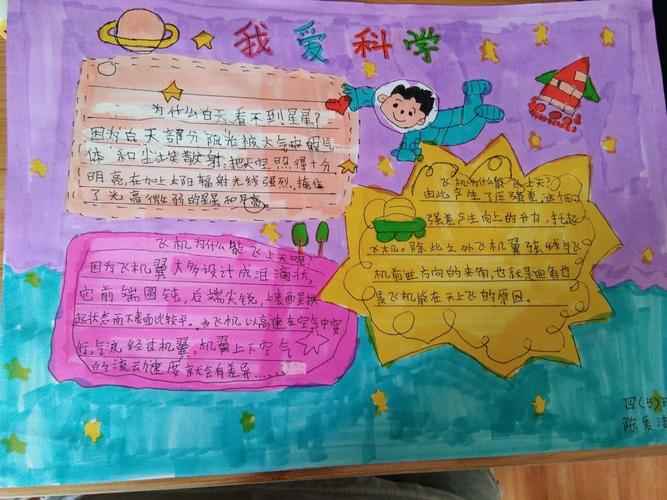 我爱科学
为什么白天看不到星星?
因为白天部分阳光被大气中的气
体和尘埃散射,把天空照得十分
明亮,在加上太阳辐射光线强烈,掩盖
了光亮微弱的星星和月亮。
飞机为什么能飞上天呢
因为飞机翼大多设计成泪滴状,
它前端圆钝,后端尖锐,上表面
起状态而下表面比较平。当飞机以高速在空气中穿
气流经过机翼,机翼上下空气
的流动速度就会有差异……
飞机为什么能飞上天?
由此产生了压强差,这个
强差产生向上的升力,托起
飞机。除此之外飞机翼强
机有些方向的来
是飞机能在天上飞的原因。
四(
陈